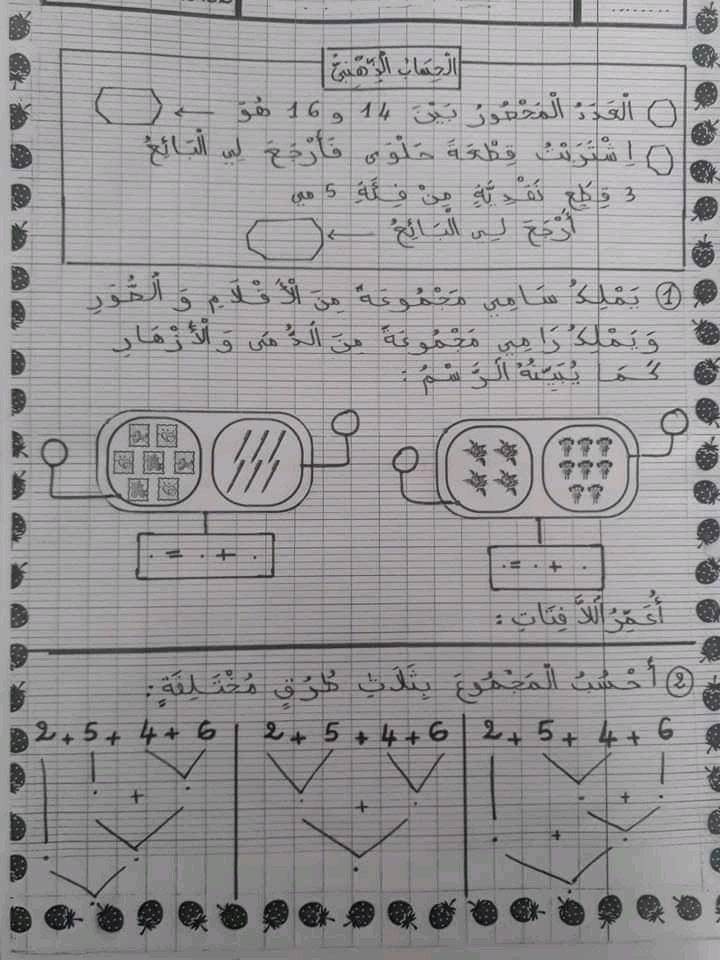 الْحِسَابُ الذِّهْنِيُّ
الْعَدَدُ الْمَحْصُورُ بَيْنَ 14 و 16 هُوَ ←
اِشْتَرَيْتُ قِطْعَةَ حَلْوَى فَأَرْجَعَ لِي الْبَائِعُ
3 قِطَعٍ نَقْدِيَّةٍ مِنْ فِئَةِ 5 مي
أَرْجَعَ لِي الْبَائِعُ ←
① يَمْلِكُ سَامِي مَجْمُوعَةً مِنَ الْأَقْلَامِ وَ الصُّوَرِ
وَيَمْلِكُ رَامِي مَجْمُوعَةً مِنَ الدُّمَى وَالْأَزْهَارِ
كَمَا يُبَيِّنُهُ الرَّسْمُ :
. = . + .
. = . + .
أُعَمِّرُ اللَّافِتَاتِ :
② أَحْسُبُ الْمَجْمُوعَ بِثَلَاثِ طُرُقٍ مُخْتَلِفَةٍ :
2 + 5 + 4 + 6
2 + 5 + 4 + 6
2 + 5 + 4 + 6
. + .
. + .
. + .
. + .